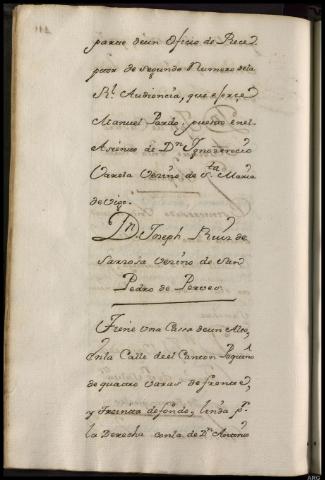 parue de un Oficio de Rece
ptor de segundo Numero de la
Rl. Audiencia, que exerçe
Manuel Pardo, puesto en el
Asiento de Dn.
Varela Vezino de Sta. Maria
de Vigo.
Dn. Joseph Ruiz de
Sarrosa Vezino de San
Pedro de
Tiene una Cassa de un Alto,
en la Calle de el Canton Pequeño
de quatro varas de frente,
y treinta de fondo, linda pr.
la Derecha con la de Dn. Antonio
ARG